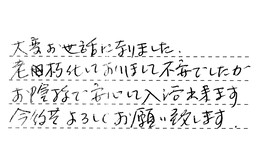 大変お世話になりました.
老朽化しておりまして不安でしたが
お陰様で安心して入浴出来ます
今後もよろしくお願い致します.